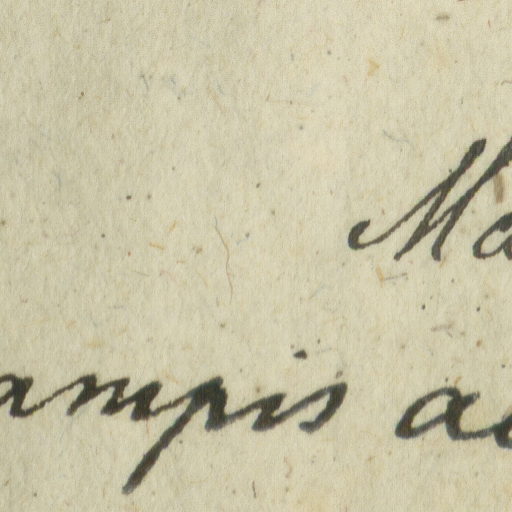 Ma
ampis ac